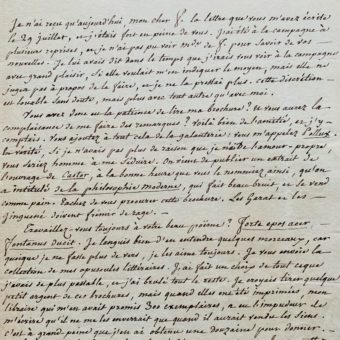 Je n'ai reçu qu'aujourd'hui, mon cher f. la lettre que vous m'avez écrite
le 29 juillet, et j'étais fort en peine de vous. J'ai été à la campagne à
plusieurs reprises, et je n'ai pas pu voir md.e de f. pour savoir de vos
nouvelles. Je lui avais dit dans le temps que j'irais vous voir à la campagne
avec grand plaisir, si elle voulait m'en indiquer le moyen, mais elle ne
jugea pas à propos de le faire, et je ne la pressai plus. Cette discrétion
est louable sans doute, mais plus avec tout autre qu'avec moi.
Vous avez donc eu la patience de lire ma brochure? Et vous aurez la
complaisance de me faire des remarques? Voilà bien de l'amitié, et j'y
comptais. Vous ajoutez à tout cela de la galanterie: vous m'appelez Pollux
la vérité. Si je n'avais pas plus de raison que je n'ai d'amour-propre,
vous seriez homme à me séduire. On vient de publier un extrait de
l'ouvrage de Castor, à la bonne heure que vous le nommiez ainsi, qu'on
a intitulé de la philosophie moderne, qui fait beau bruit, et se vend
comme pain. Tachez de vous procurer cette brochure. Les Garat et les
Jinguené doivent frémir de rage.
Travaillez-vous toujours à votre beau poëme? Forte epos acer
Fontanus ducit. Je languis bien d'en entendre quelques morceaux, car
quoique je ne fasse plus de vers, je les aime toujours. Je vous envoie la
collection de mes opuscules littéraires. J'ai fait un choix de tout ce que
j'avais de plus passable, et j'ai brûlé tout le reste. Je croyais tirer quelque
petit argent de ces brochures, mais quand elles ont été imprimées, mon
libraire qui m'en avait promis 300 exemplaires, a eu l'impudeur de
m'écrire qu'il ne me les enverrait que quand il aurait vendu les siens.
c'est à grand peine que j'en ai obtenu une douzaine pour donner.